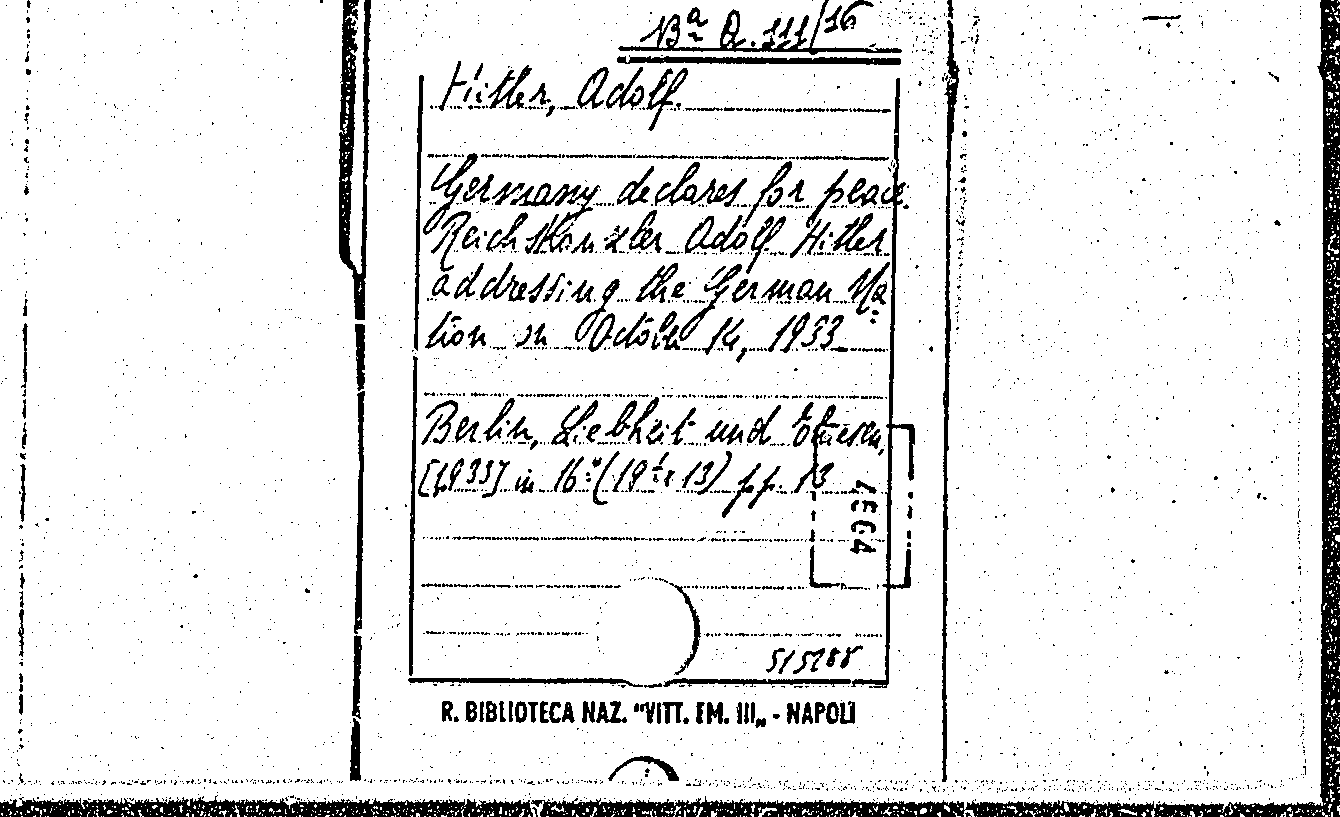 Bª Q. 111/16
Hitler, Adolf.
Germany declares for peace.
Reichskanzler Adolf Hitler
addressing the German Na
tion on October 14, 1933
Berlin, Liebheit und
[1933] in 16º (19 13) pp. 13
515288
R. BIBLIOTECA NAZ. "VITT. EM. III„ - NAPOLI